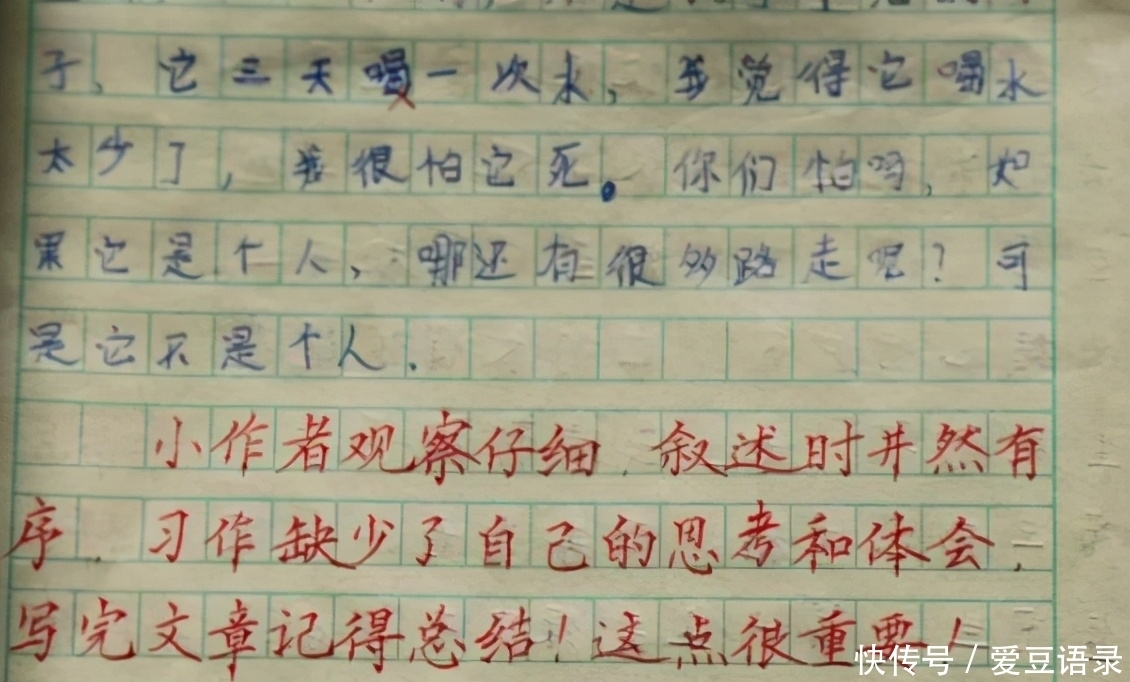 子，它三天喝一次水，我觉得它喝水
太少了，我很怕它死。你们怕吗，如
果它是个人，哪还有很多路走呢？可
是它不是个人.
小作者观察仔细.叙述时井然有
序.习作缺少了自己的思考和体会，
写完文章记得总结！这点很重要！
快传号/爱豆语录